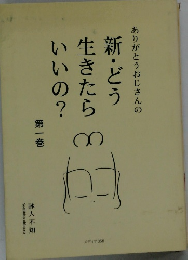 ありがとうおじさんの
新・どう
生きたら
いいの？
第一巻
詠人不知